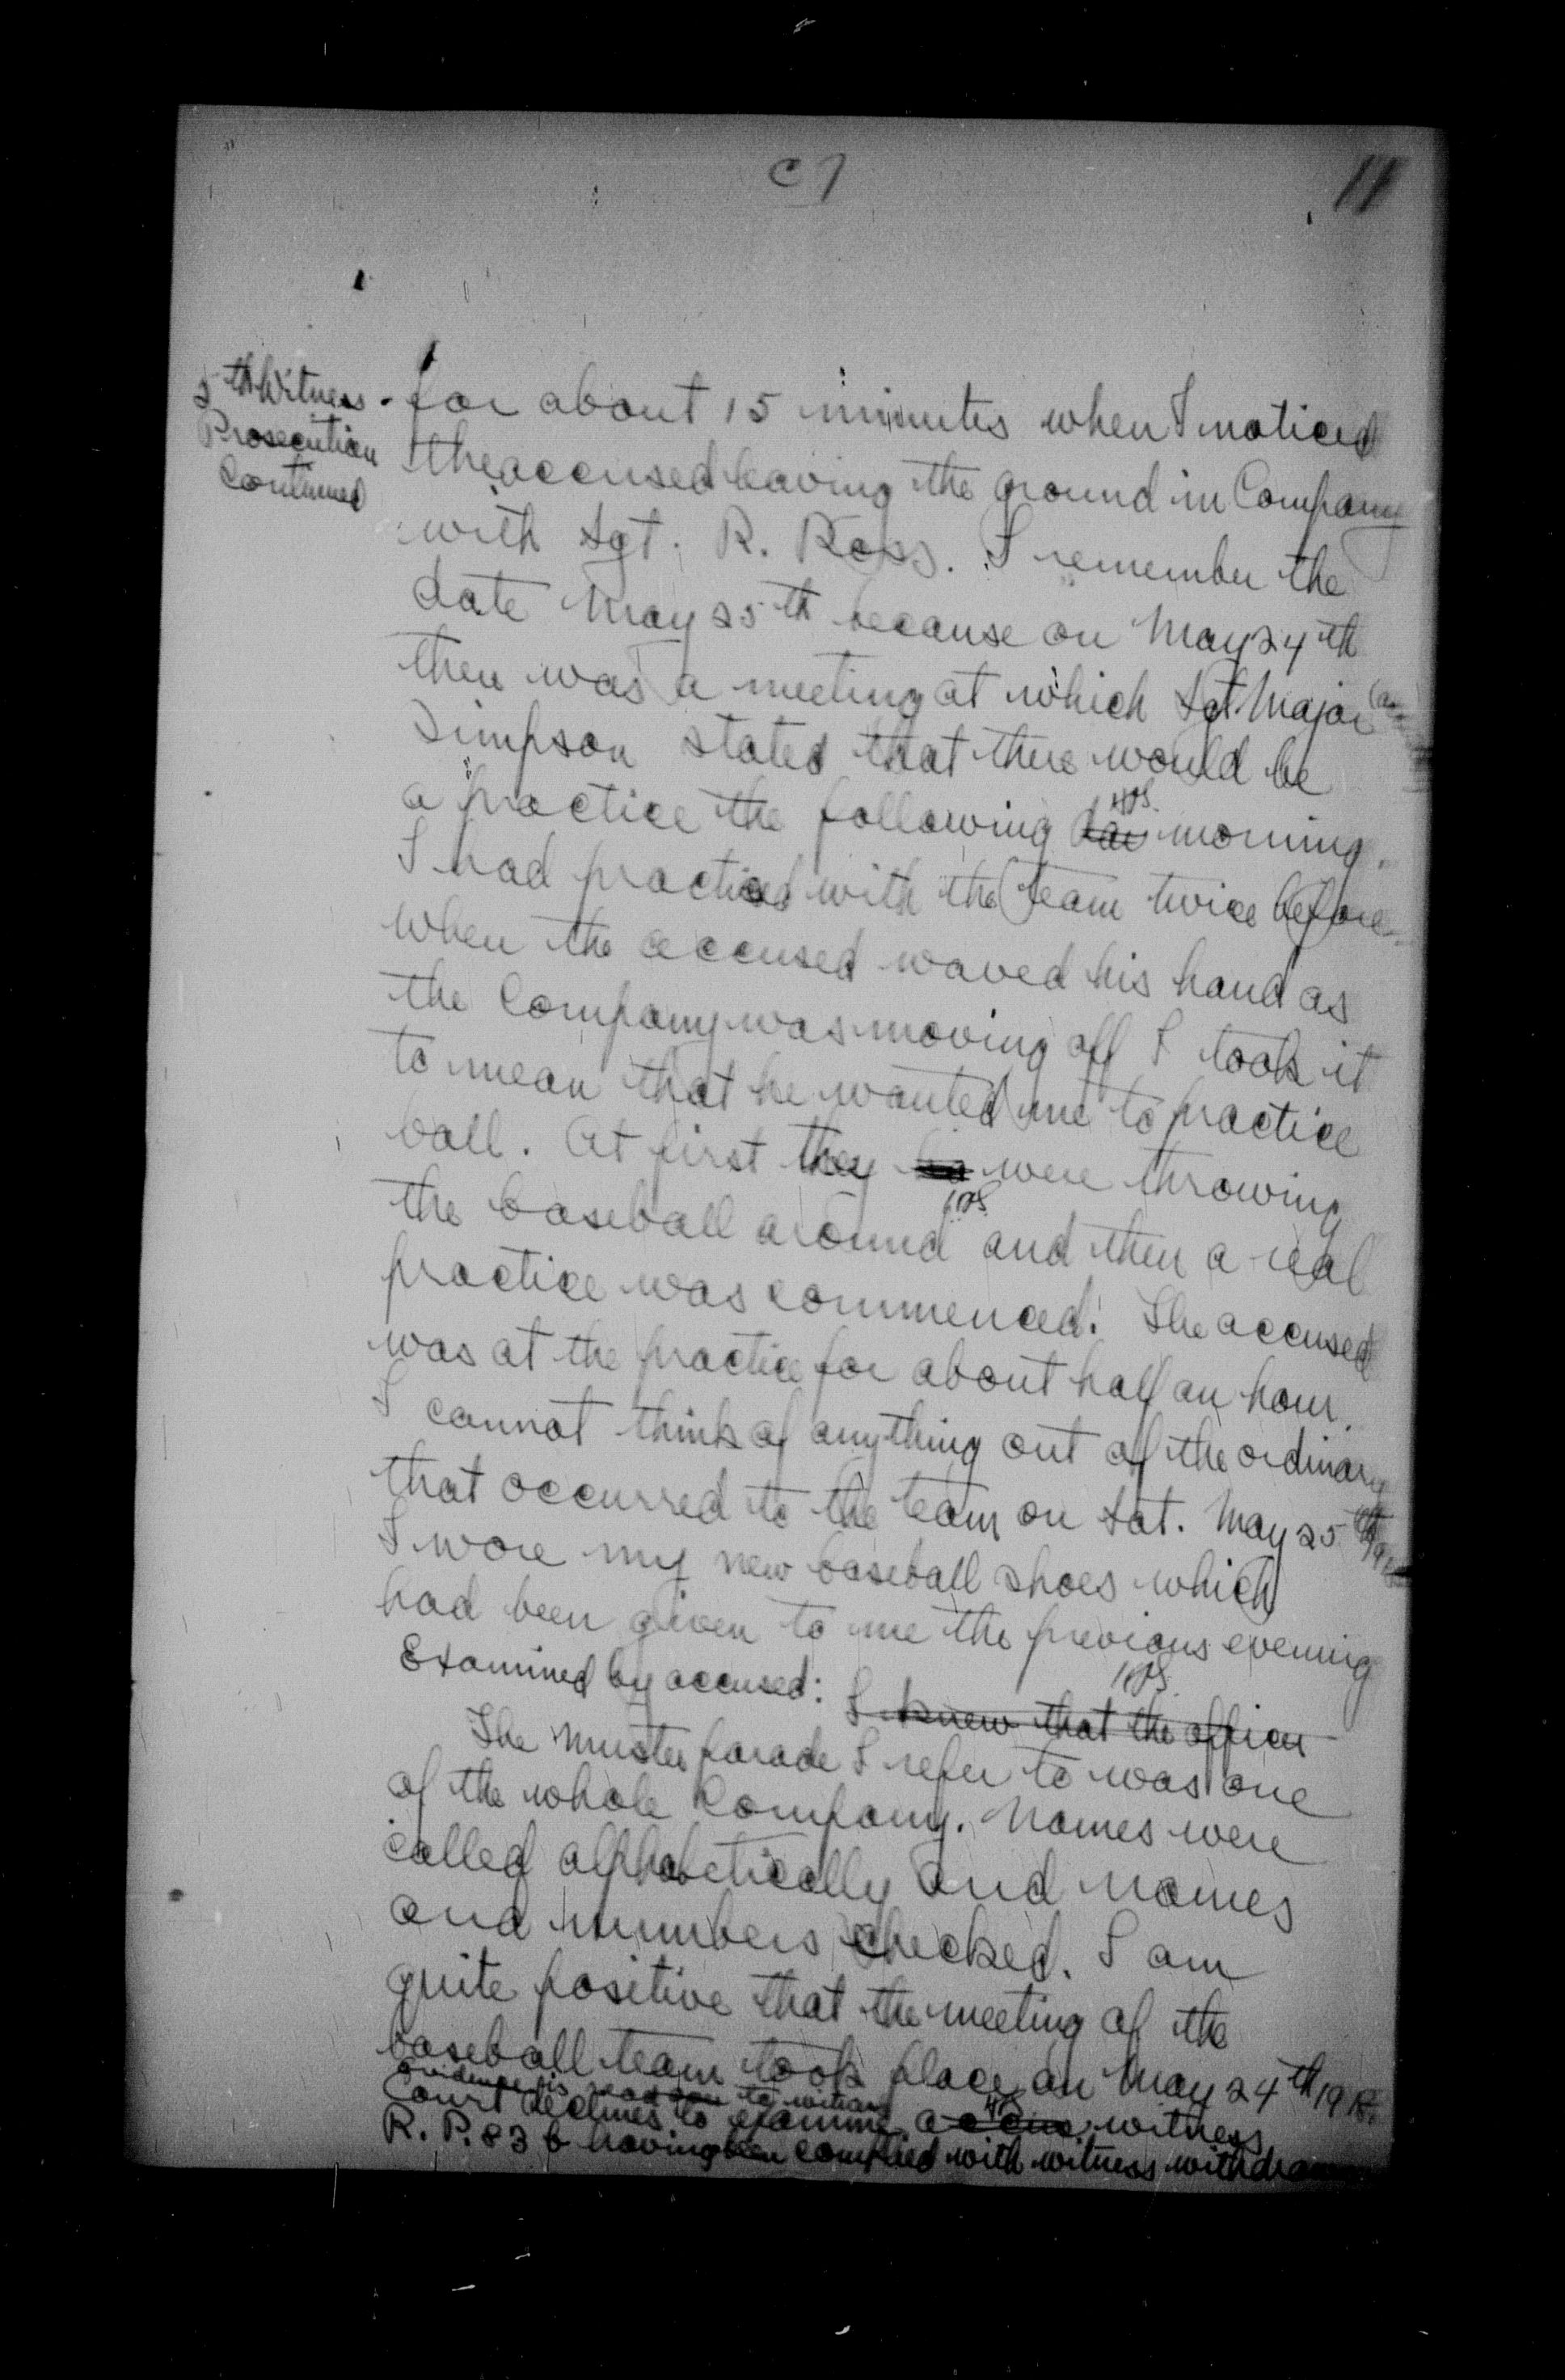 C7
11
5th Witness
Prosecution
Continued
for about 15 minutes when I noticed
the accused leaving the ground in Company
with Sgt. R. Ross. I remember the
date May 25th because on May 24th
there was a meeting at which Sgt. Major
Simpson stated that there would be
a practice the following day morning.
I had practiced with the team twice before
when the accused waved his hand as
the Company was moving off I took it
to mean that he wanted me to practice
ball. At first they were throwing
the baseball around and then a real
practice was commenced. The accused
was at the practice for about half an hour.
I cannot think of anything out of the ordinary
that occurred to the team on Sat. May 25th
I wore my new baseball shoes which
had been given to me the previous evening
Examined by accused: I knew that the officer
The muster parade I refer to was one
of the whole Company. Names were
called alphabetically and names
and numbers checked. I am
quite positive that the meeting of the
baseball team took place on May 24th 1918.
Evidence is read over to witness
Court declines to examine accus witness
R. P. 83 b having been complied with witness withdraws